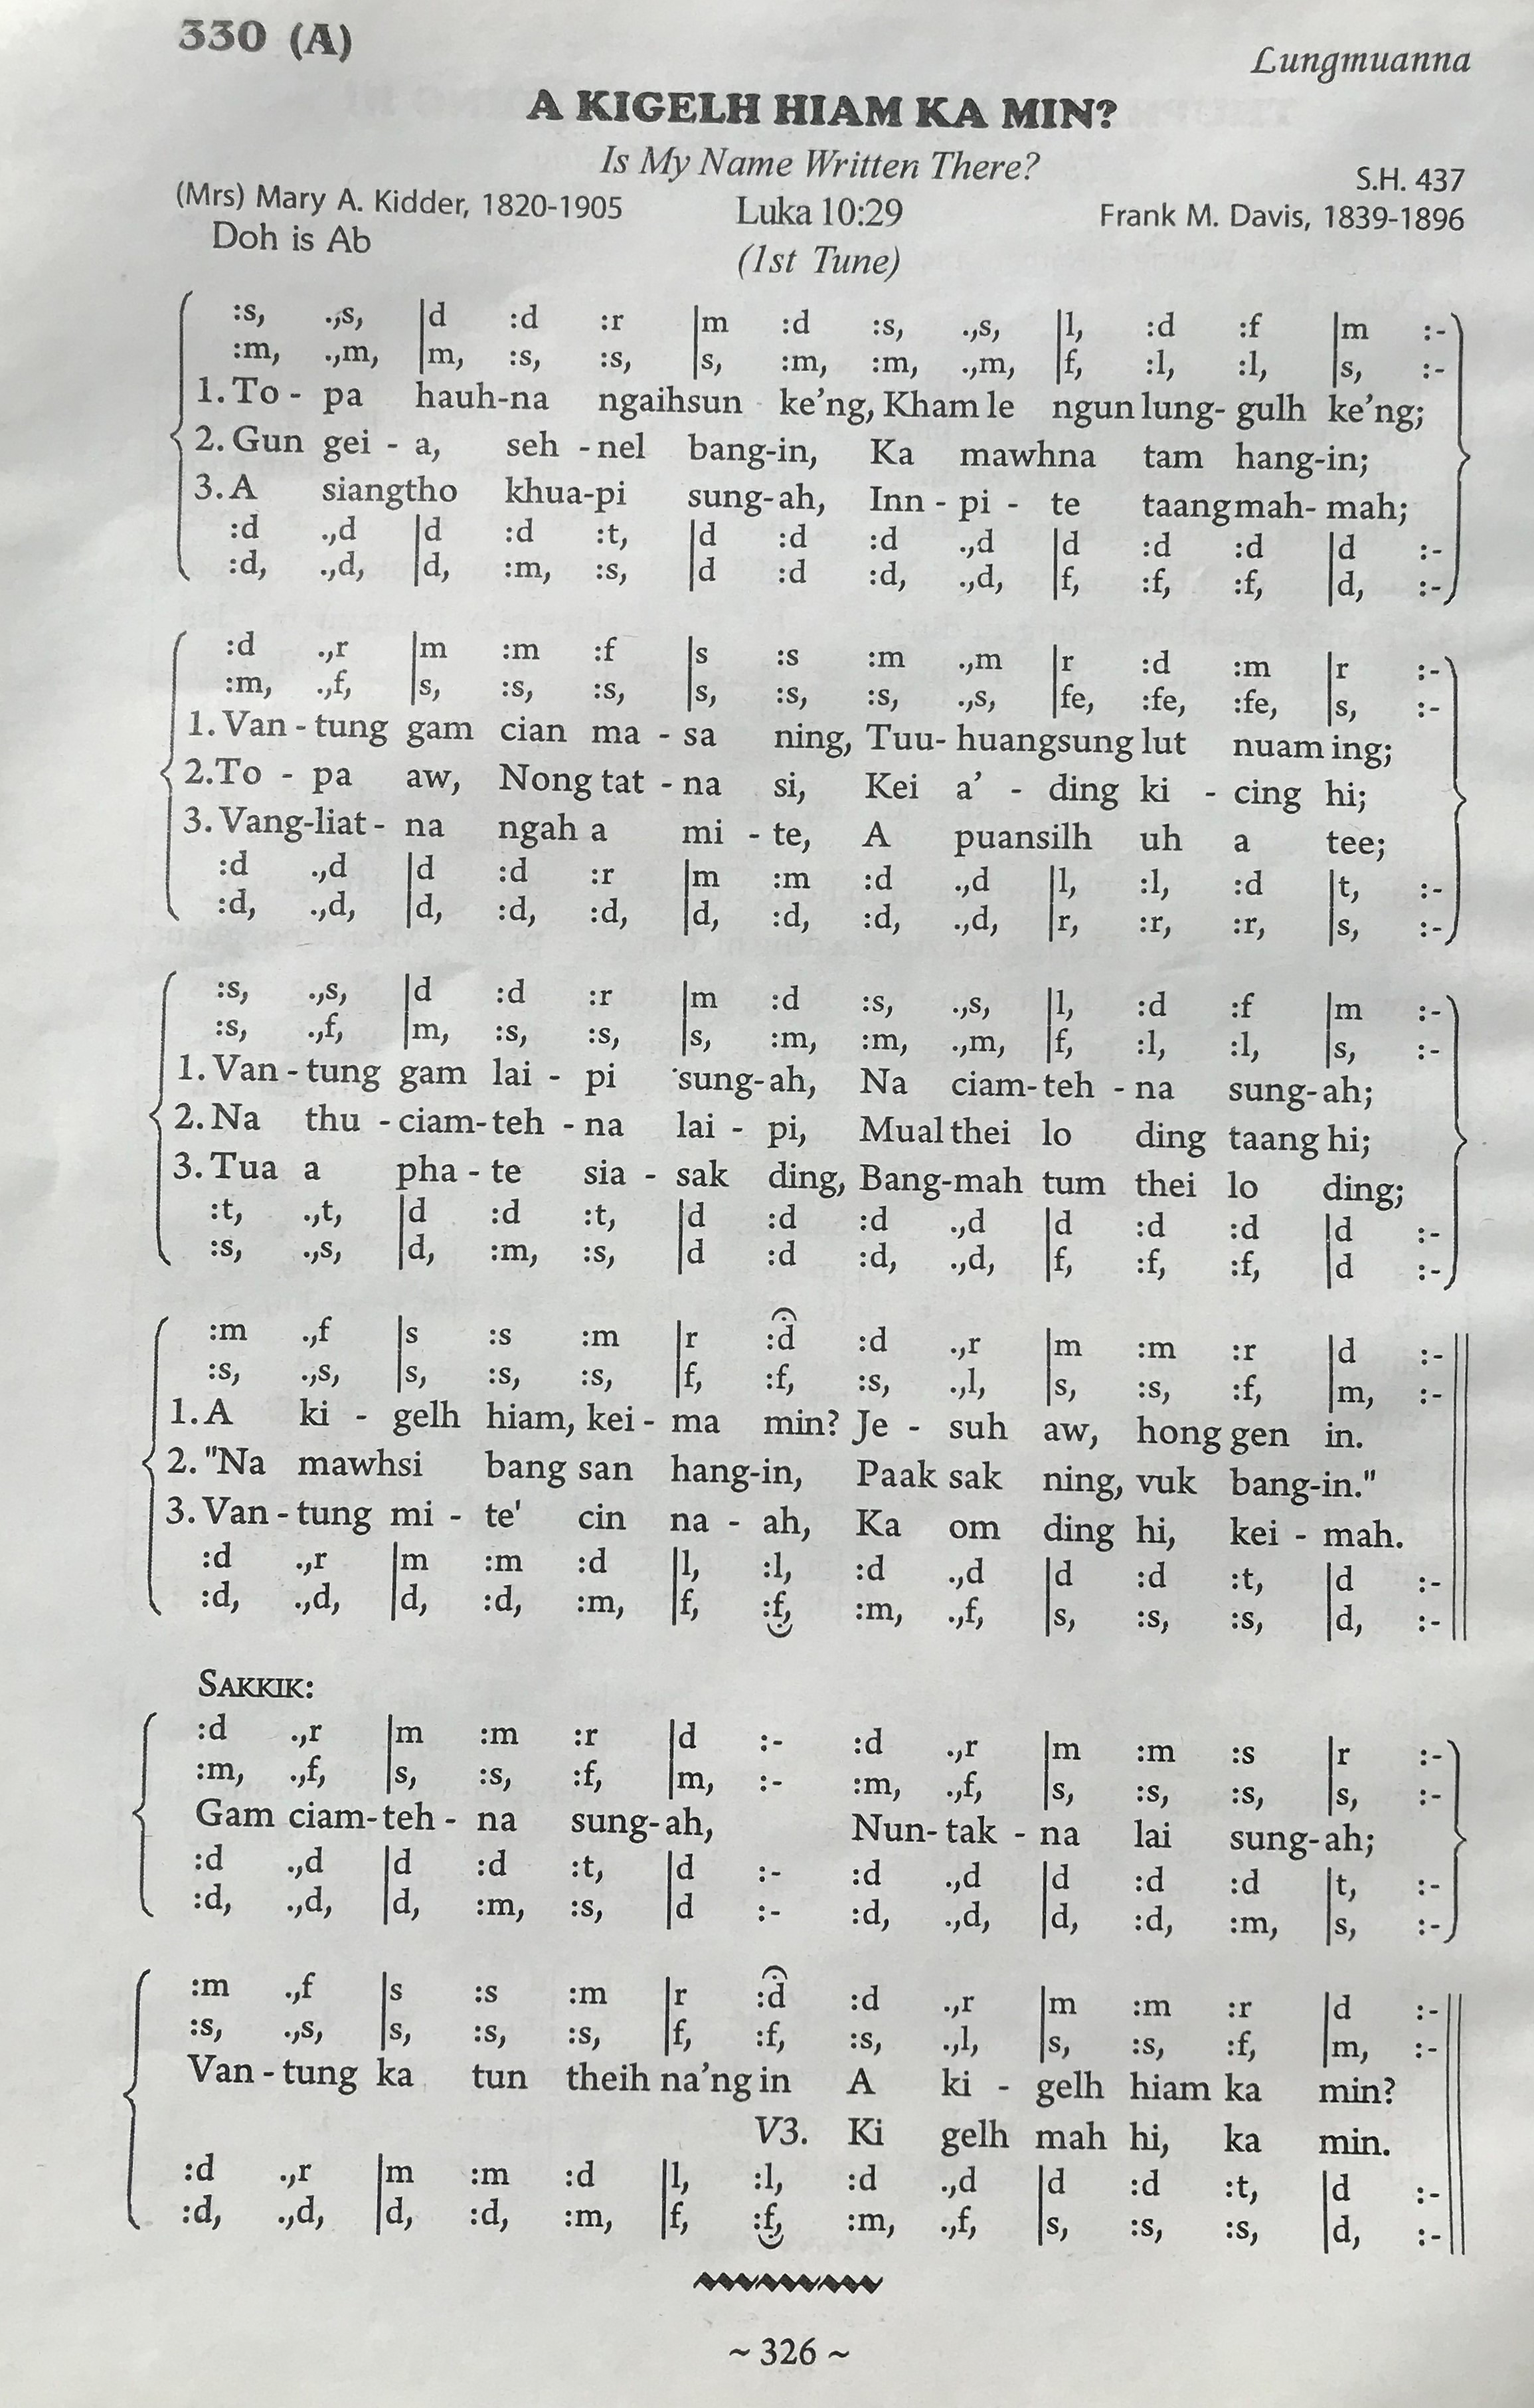 330 (A)
Lungmuanna
A KIGELH HIAM KA MIN?
Is My Name Written There?
S.H. 437
(Mrs) Mary A. Kidder, 1820-1905 Luka 10:29 Frank M. Davis, 1839-1896
Doh is Ab
(1st Tune)
:s, .,s, |d :d :r |m :d :s, .,s, |l, :d :f |m :-
:m, .,m, |m, :s, :s, |s, :m, :m, .,m, |f, :l, :l, |s, :-
1. To - pa hauh-na ngaihsun ke'ng, Kham le ngun lung- gulh ke'ng;
2. Gun gei - a, seh - nel bang-in, Ka mawhna tam hang-in;
3. A siangtho khua-pi sung-ah, Inn - pi - te taangmah- mah;
:d .,d |d :d :t, |d :d :d .,d |d :d :d |d :-
:d, .,d, |d, :m, :s, |d :d :d, .,d, |f, :f, :f, |d, :-
:d .,r |m :m :f |s :s :m .,m |r :d :m |r :-
:m, .,f, |s, :s, :s, |s, :s, :s, .,s, |fe, :fe, :fe, |s, :-
1. Van - tung gam cian ma - sa ning, Tuu- huangsung lut nuam ing;
2.To - pa aw, Nong tat - na si, Kei a' - ding ki - cing hi;
3. Vang-liat - na ngah a mi - te, A puansilh uh a tee;
:d .,d |d :d :r |m :m :d .,d |l, :l, :d |t, :-
:d, .,d, |d, :d, :d, |d, :d, :d, .,d, |r, :r, :r, |s, :-
:s, .,s, |d :d :r |m :d :s, .,s, |l, :d :f |m :-
:s, .,f, |m, :s, :s, |s, :m, :m, .,m, |f, :l, :l, |s, :-
1. Van - tung gam lai - pi sung-ah, Na ciam-teh - na sung-ah;
2. Na thu - ciam-teh - na lai - pi, Mual thei lo ding taang hi;
3. Tua a pha - te sia - sak ding, Bang-mah tum thei lo ding;
:t, .,t, |d :d :t, |d :d :d .,d |d :d :d |d :-
:s, .,s, |d, :m, :s, |d :d :d, .,d, |f, :f, :f, |d :-
:m .,f |s :s :m |r :d :d .,r |m :m :r |d :-
:s, .,s, |s, :s, :s, |f, :f, :s, .,l, |s, :s, :f, |m, :-
1. A ki - gelh hiam, kei - ma min? Je - suh aw, hong gen in.
2. "Na mawhsi bang san hang-in, Paak sak ning, vuk bang-in."
3. Van - tung mi - te' cin na - ah, Ka om ding hi, kei - mah.
:d .,r |m :m :d |l, :l, :d .,d |d :d :t, |d :-
:d, .,d, |d, :d, :m, |f, :f, :m, .,f, |s, :s, :s, |d, :-
SAKKIK:
:d .,r |m :m :r |d :- :d .,r |m :m :s |r :-
:m, .,f, |s, :s, :f, |m, :- :m, .,f, |s, :s, :s, |s, :-
Gam ciam-teh - na sung-ah, Nun- tak - na lai sung-ah;
:d .,d |d :d :t, |d :- :d .,d |d :d :d |t, :-
:d, .,d, |d, :m, :s, |d :- :d, .,d, |d, :d, :m, |s, :-
:m .,f |s :s :m |r :d :d .,r |m :m :r |d :-
:s, .,s, |s, :s, :s, |f, :f, :s, .,l, |s, :s, :f, |m, :-
Van - tung ka tun theih na'ng in A ki - gelh hiam ka min?
V3. Ki gelh mah hi, ka min.
:d .,r |m :m :d |l, :l, :d .,d |d :d :t, |d :-
:d, .,d, |d, :d, :m, |f, :f, :m, .,f, |s, :s, :s, |d, :-
~ 326 ~